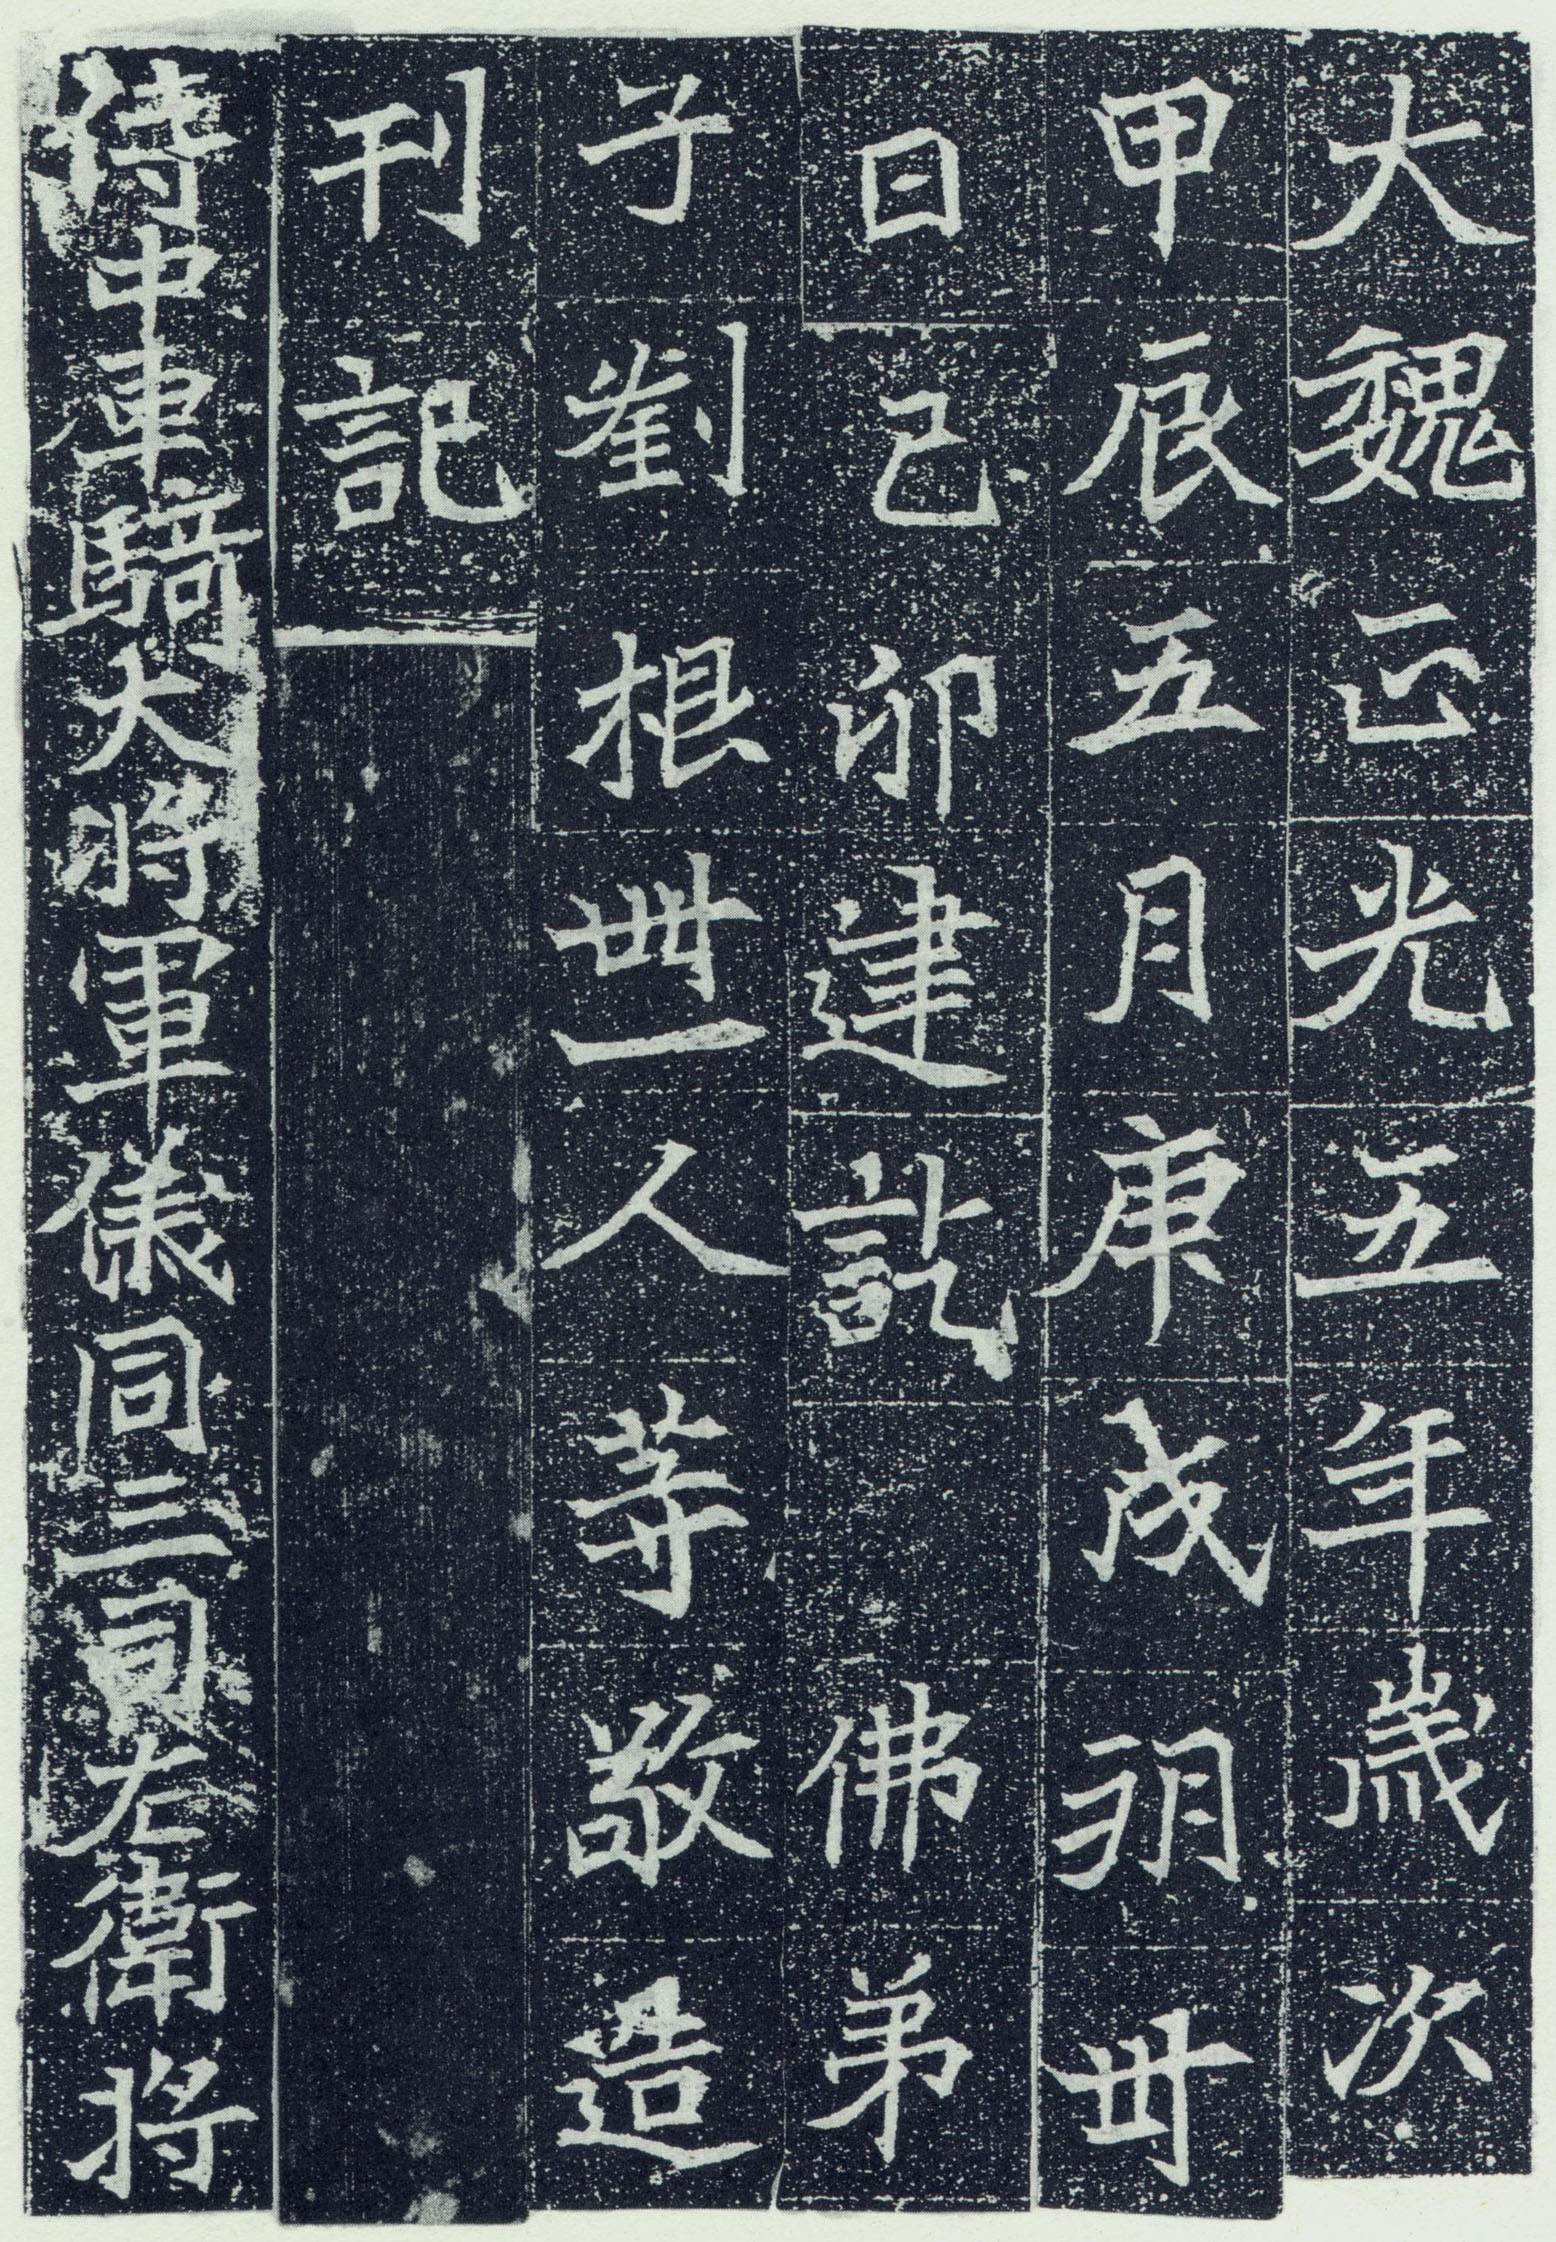 大魏正光五年歲次
甲辰五月庚戌朔卅
日己卯建訖佛弟
子劉根卌一人等敬造
刊記
侍中車騎大將軍儀同三司左衛將